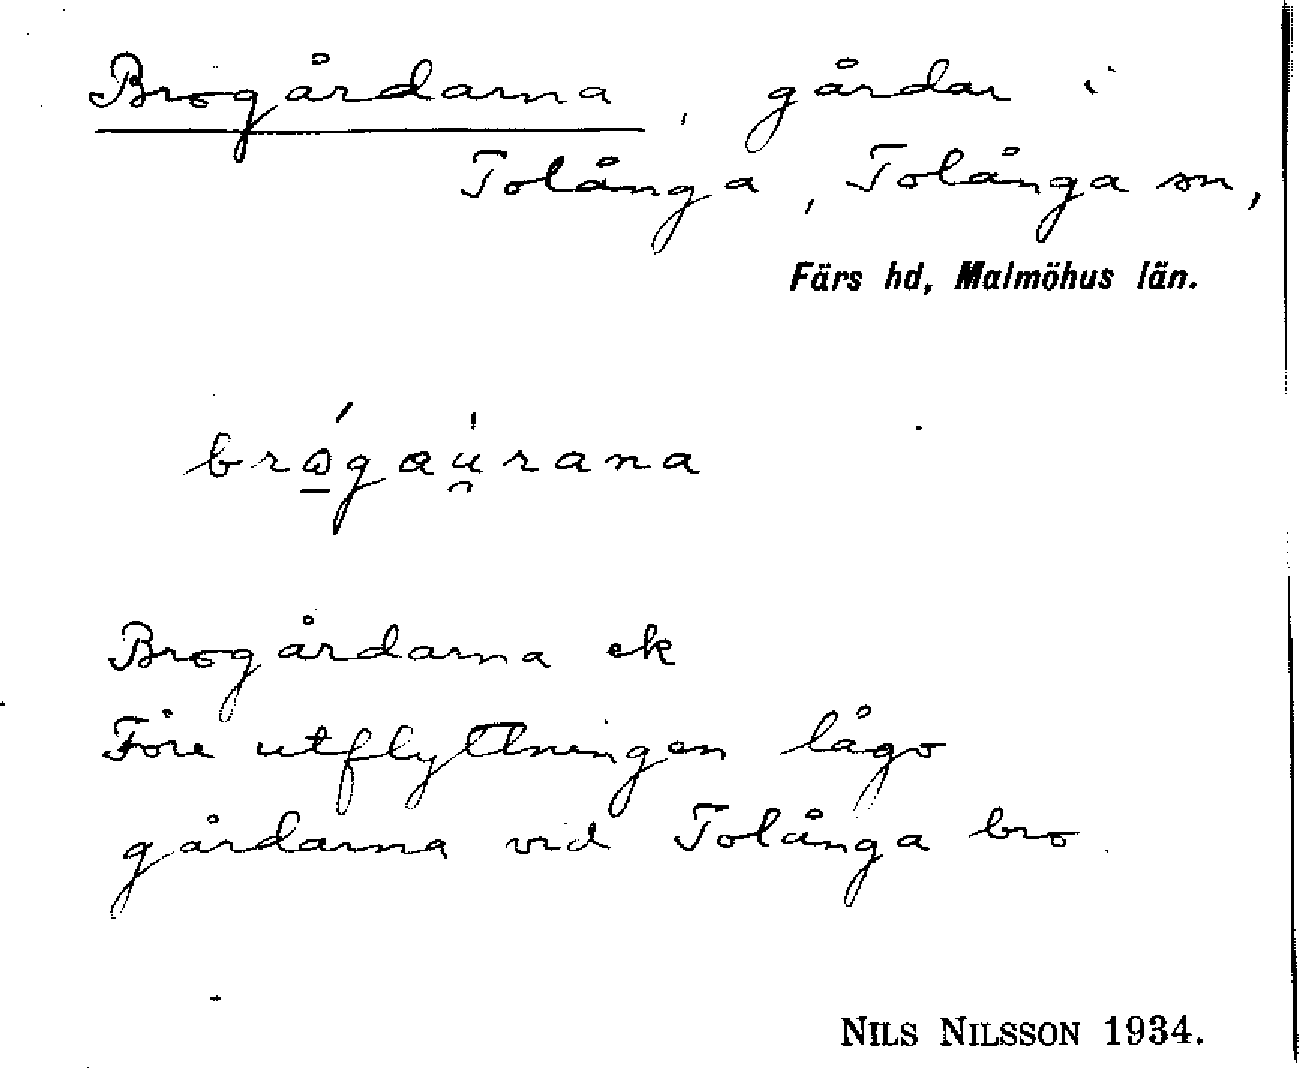 Brogårdarna, gårdar i
Tolånga, Tolånga sn,
Färs hd, Malmöhus län.
brógau̯̍rana
Brogårdarna ek
Före utflyttningen lågo
gårdarna vid Tolånga bro.
NILS NILSSON 1934.